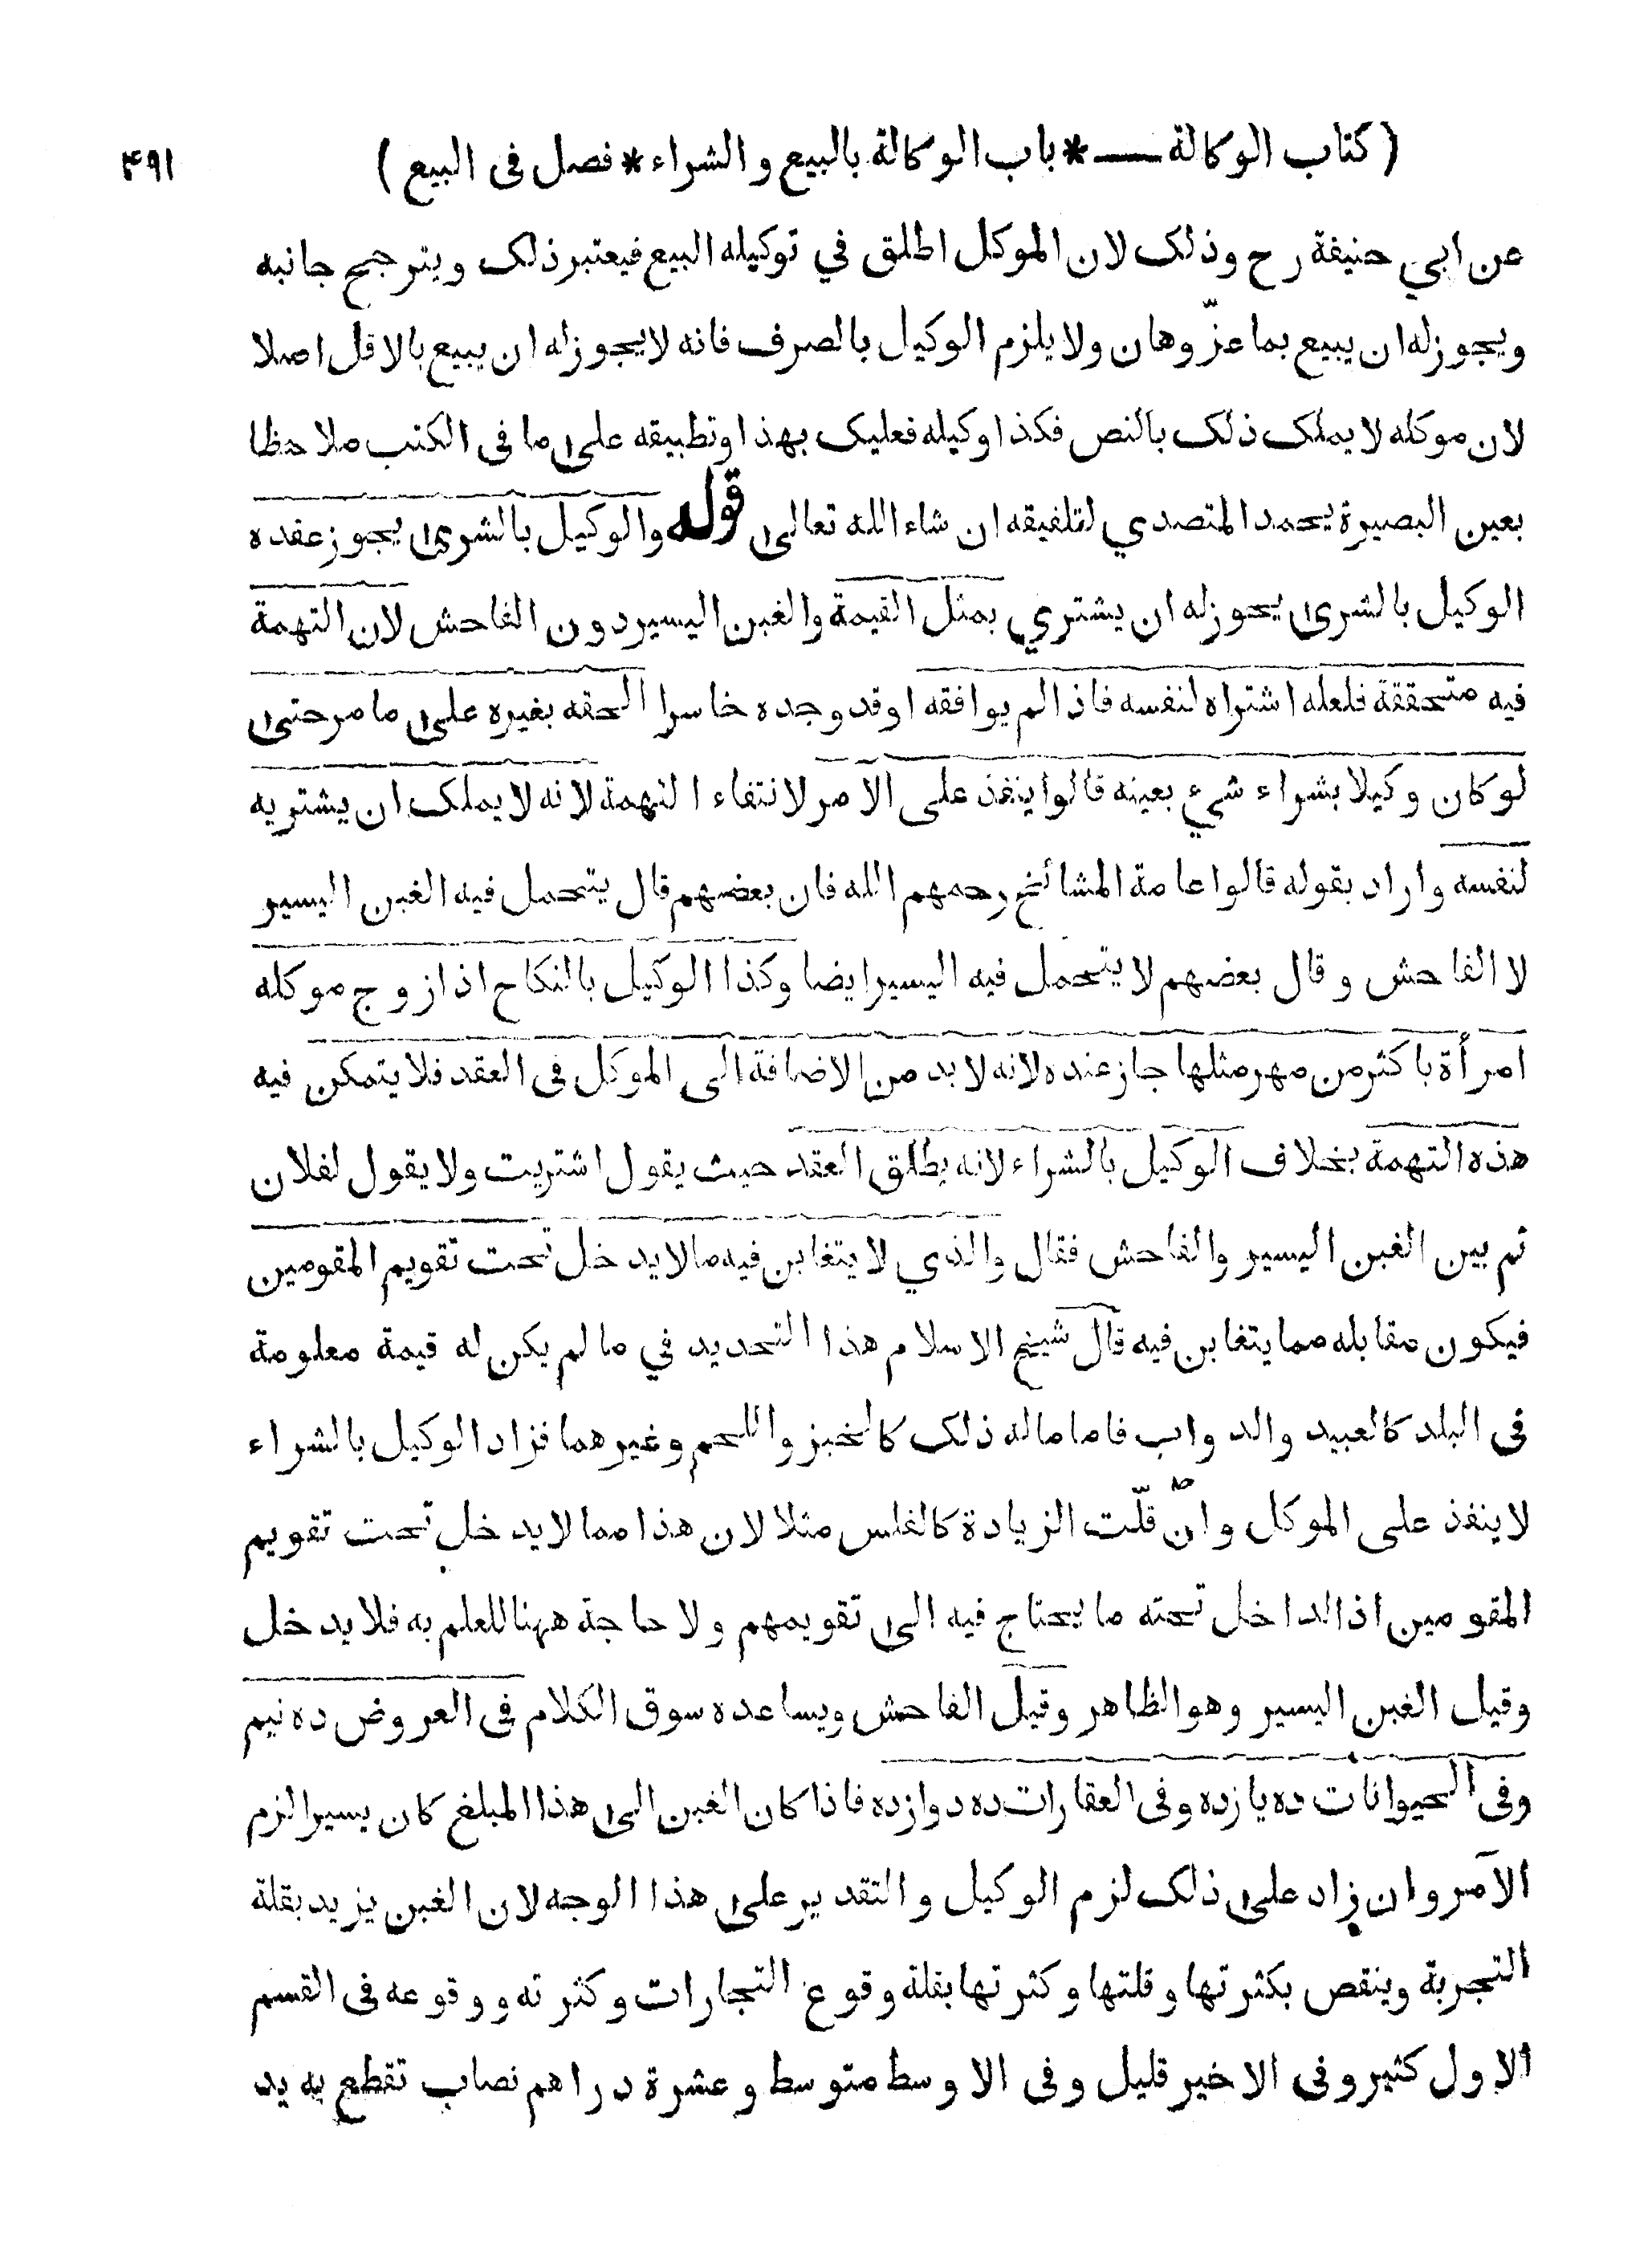 ( كتاب الوكالة — * باب الوكالة بالبيع والشراء * فصل فى البيع ) ۴۹۱
عن ابي حنيفة رح وذلك لان الموكل اطلق في توكيله البيع فيعتبر ذلك ويترجح جانبه
ويجوز له ان يبيع بما عزّ وهان ولا يلزم الوكيل بالصرف فانه لا يجوز له ان يبيع بالاقل اصلا
لان موكله لا يملك ذلك بالنص فكذا وكيله فعليك بهذا وتطبيقه على ما فى الكتب ملاحظا
بعين البصيرة يحمد المتصدي لتلفيقه ان شاء الله تعالى قوله والوكيل بالشرى يجوز عقده
الوكيل بالشرى يجوز له ان يشتري بمثل القيمة والغبن اليسير دون الفاحش لان التهمة
فيه متحققة فلعله اشتراه لنفسه فاذا لم يوافقه او قد وجده خاسرا الحقه بغيره على ما مر حتى
لو كان وكيلا بشراء شيء بعينه قالوا ينفذ على الآمر لانتفاء التهمة لانه لا يملك ان يشتريه
لنفسه واراد بقوله قالوا عامة المشائخ رحمهم الله فان بعضهم قال يتحمل فيه الغبن اليسير
لا الفاحش وقال بعضهم لا يتحمل فيه اليسير ايضا وكذا الوكيل بالنكاح اذا زوج موكله
امرأة باكثر من مهر مثلها جاز عنده لانه لا بد من الاضافة الى الموكل فى العقد فلا يتمكن فيه
هذه التهمة بخلاف الوكيل بالشراء لانه يطلق العقد حيث يقول اشتريت ولا يقول لفلان
ثم بين الغبن اليسير والفاحش فقال والذي لا يتغابن فيه ما لا يدخل تحت تقويم المقومين
فيكون مقابله مما يتغابن فيه قال شيخ الاسلام هذا التحديد في ما لم يكن له قيمة معلومة
فى البلد كالعبيد والدواب فاما ما له ذلك كالخبز واللحم وغيرهما فزاد الوكيل بالشراء
لا ينفذ على الموكل وان قلّت الزيادة كالفلس مثلا لان هذا مما لا يدخل تحت تقويم
المقومين اذ الداخل تحته ما يحتاج فيه الى تقويمهم ولا حاجة ههنا للعلم به فلا يدخل
وقيل الغبن اليسير وهو الظاهر وقيل الفاحش ويساعده سوق الكلام فى العروض ده نيم
وفى الحيوانات ده يازده وفى العقارات ده دوازده فاذا كان الغبن الى هذا المبلغ كان يسيرا لزم
الآمر وان زاد على ذلك لزم الوكيل والتقدير على هذا الوجه لان الغبن يزيد بقلة
التجربة وينقص بكثرتها وقلتها وكثرتها بقلة وقوع التجارات وكثرته ووقوعه فى القسم
الاول كثير وفى الاخير قليل وفى الاوسط متوسط وعشرة دراهم نصاب تقطع به يد